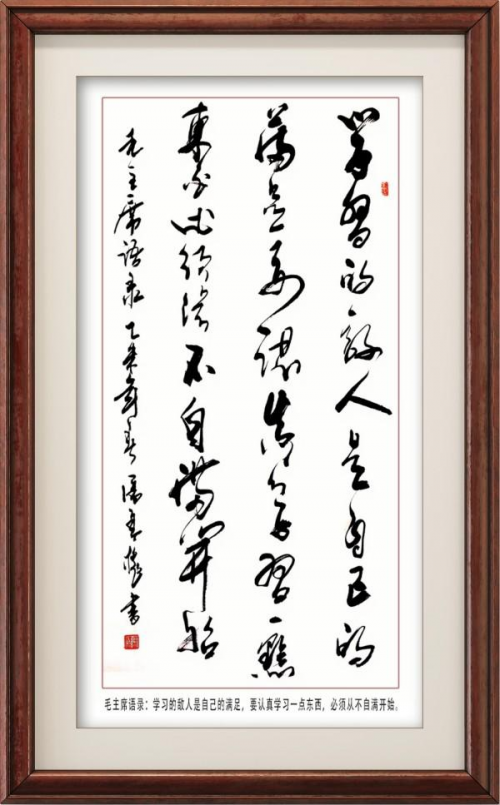 學習的敌人是自己的
满足要認真學習一點
東西必须從不自满開始
毛主席语录 乙未年春 書
毛主席语录：学习的敌人是自己的满足，要认真学习一点东西，必须从不自满开始。